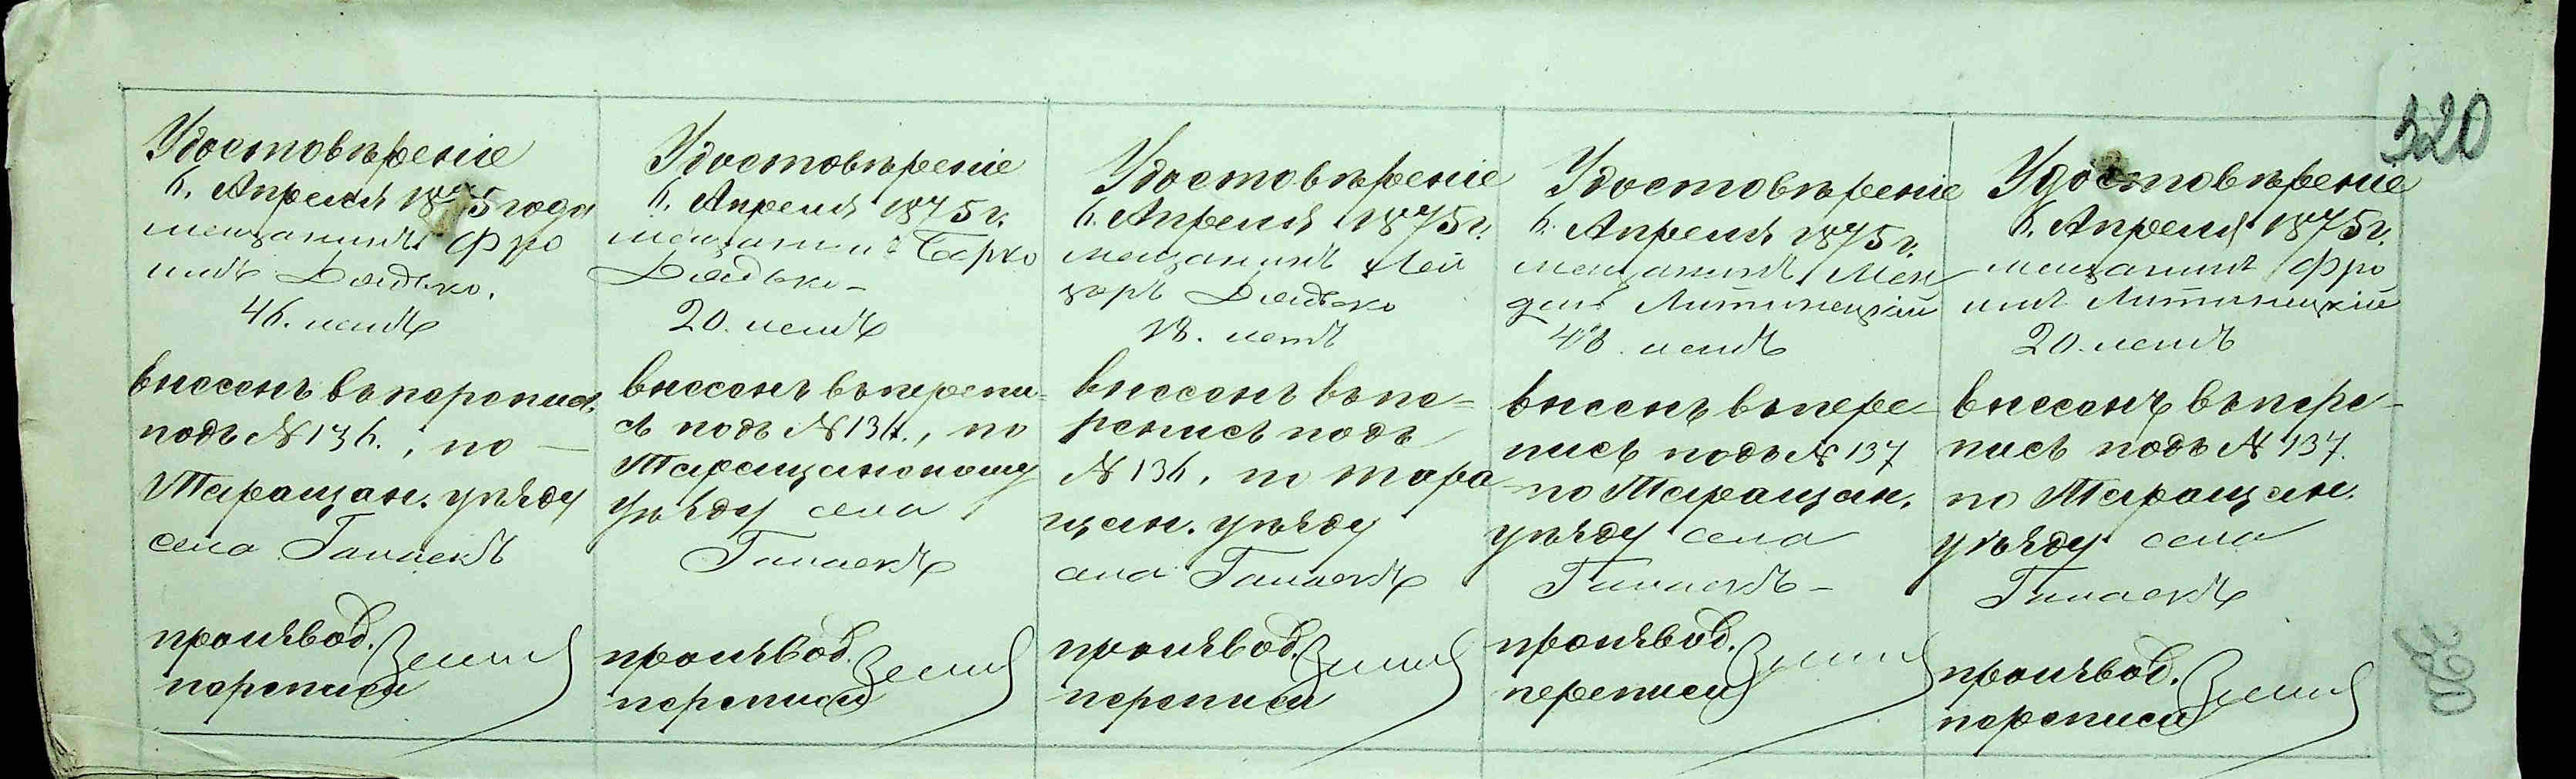 320
Удостовѣреніе
6. Апреля 1875 года
мещанинъ Фро
имъ Дидько.
46. летъ
внесенъ въ перепись
подъ № 136., по —
Таращан. уѣзду
села
производ.
переписи
Удостовѣреніе
6. Апреля 1875 г.
мещанинъ Берко
Дидько –
20. летъ
внесенъ въ перепи-
сь подъ № 136., по
Таращанскому
уѣзду села
производ.
переписи
Удостовѣреніе
6. Апреля 1875 г.
мещанинъ Лей
зоръ Дидько
18. летъ
внесенъ въ пе=
репись подъ
№ 136, по тара
щан. уѣзду
села
производ.
переписи
Удостовѣреніе
6. Апреля 1875 г.
мещанинъ Мен
дель Литинецкій
48. летъ
внесенъ въ пере
пись подъ № 137
по Таращан.
уѣзду села
производ.
переписи
Удостовѣреніе
6. Апреля 1875 г.
мещанинъ Фро
имъ Литинецкій
20. летъ
внесенъ въ пере-
пись подъ № 137.
по Таращан.
уѣзду села
производ.
переписи